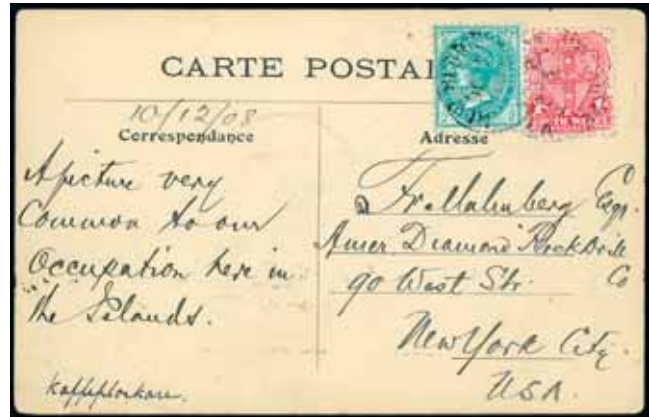 CARTE POSTAL
10/12/08
Correspondance
Adresse
A picture very
Common to our
Occupation here in
the Islands.
Kaffeplockare.
Fr. Malmberg Esqr.
Amer. Diamond Rock Drill
Co
90 West Str.
New York City.
U.S.A.